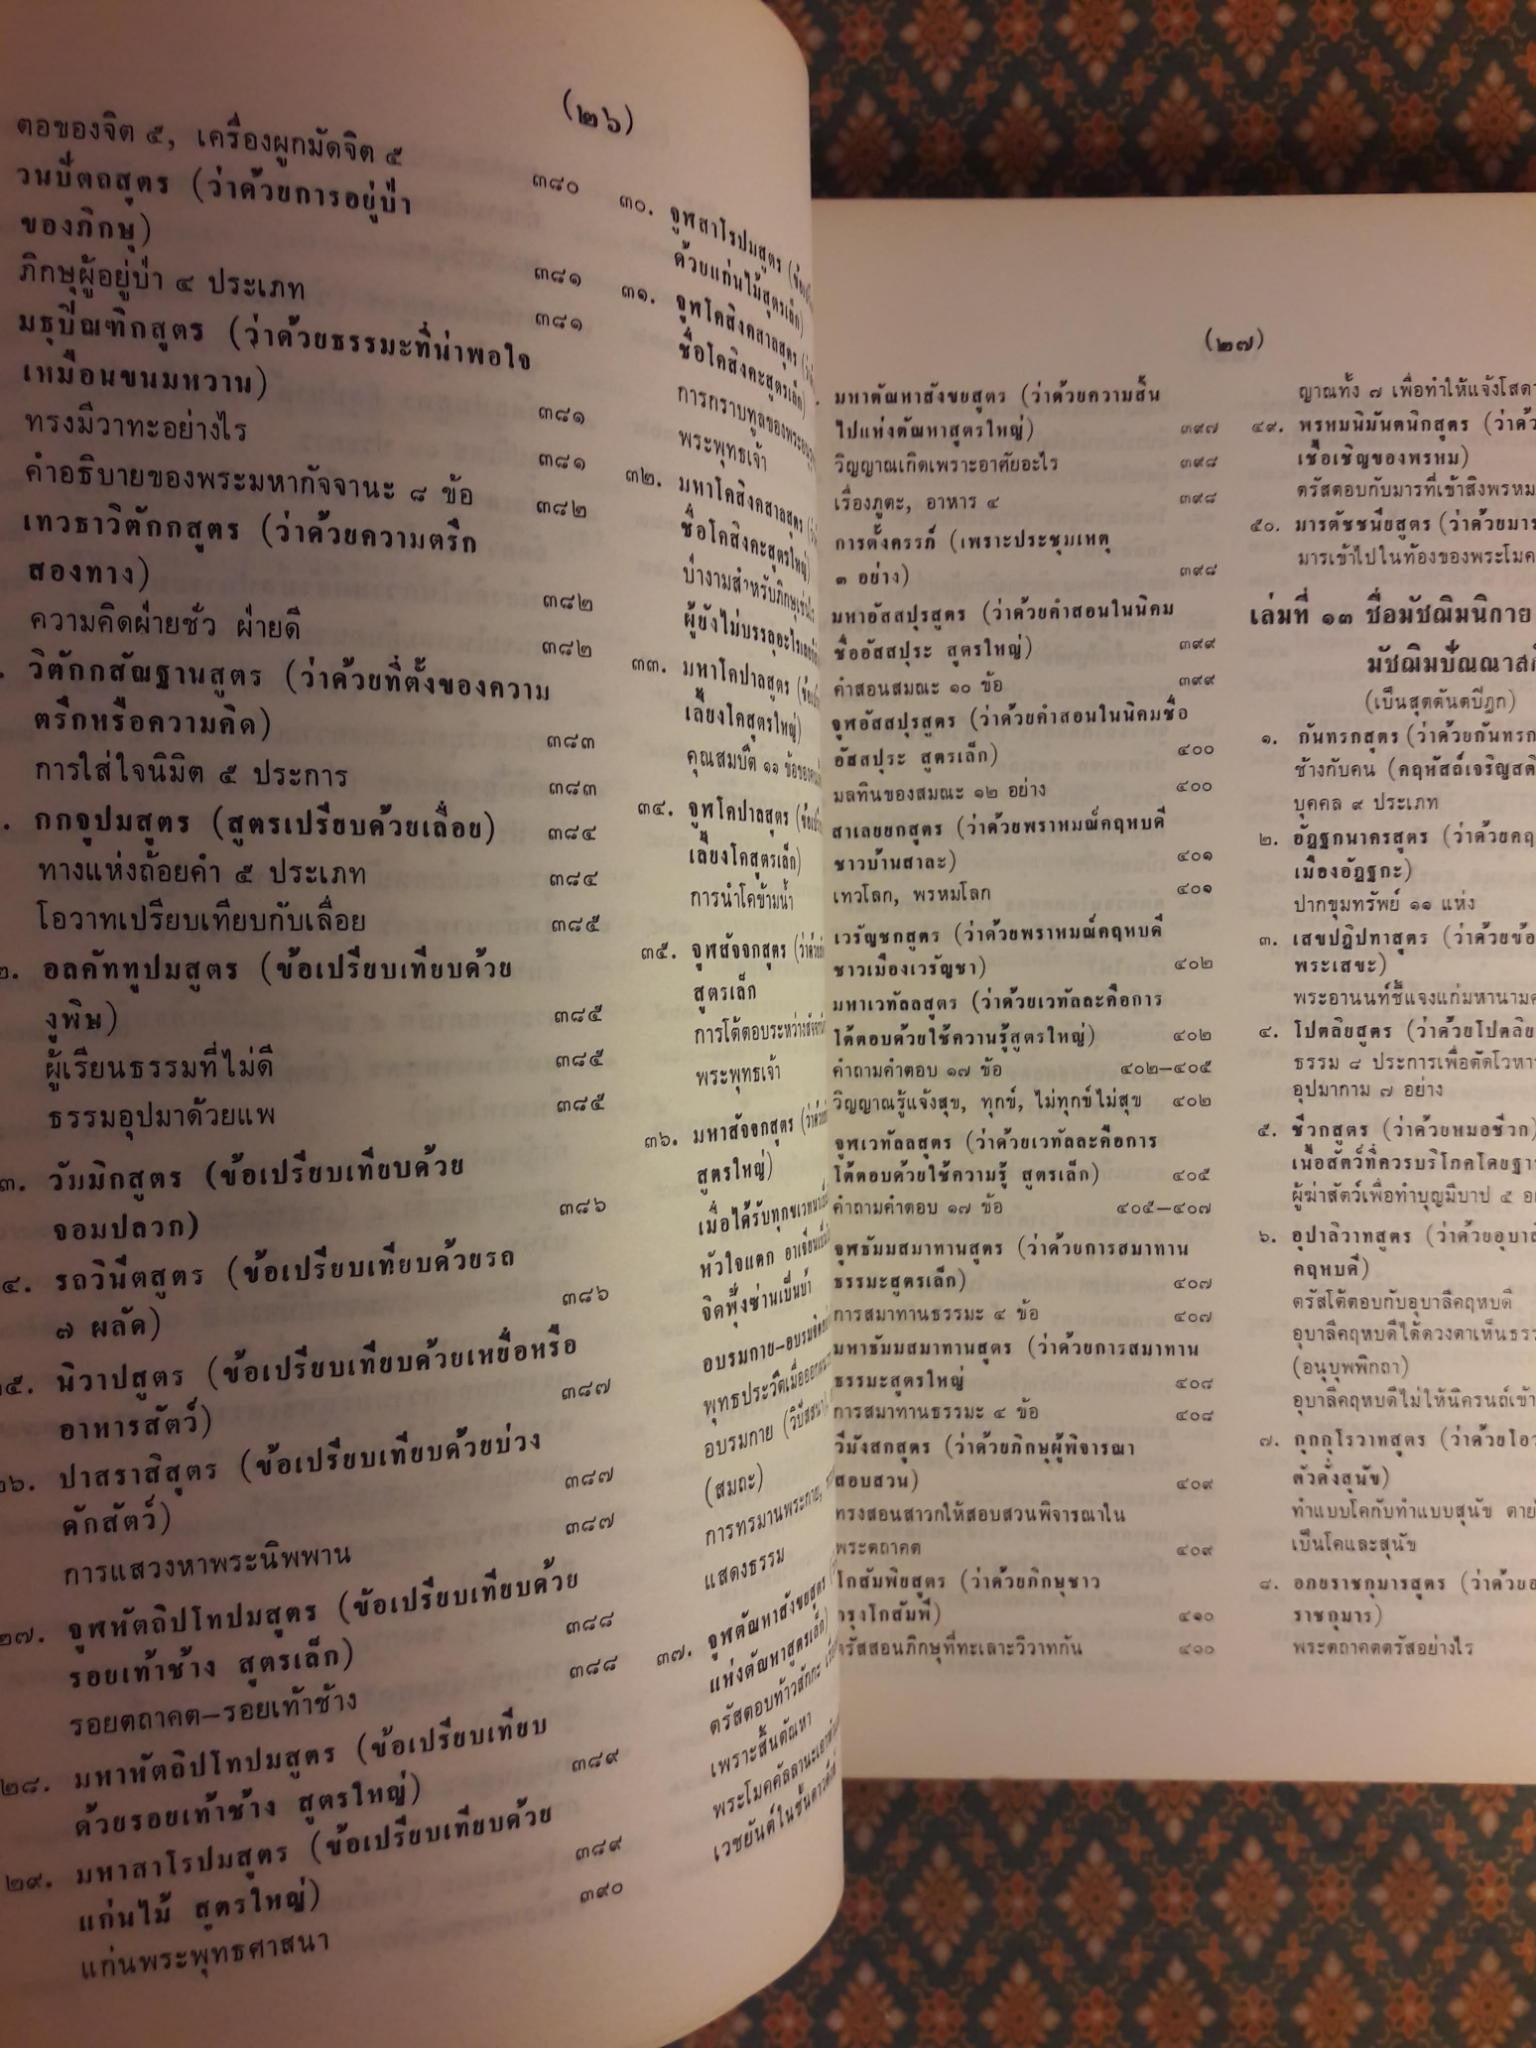 (๒๖)
ตอของจิต ๕, เครื่องผูกมัดจิต ๕ ๓๘๐
วนปัตถสูตร (ว่าด้วยการอยู่ป่า
ของภิกษุ) ๓๘๑
ภิกษุผู้อยู่ป่า ๔ ประเภท ๓๘๑
มธุปิณฑิกสูตร (ว่าด้วยธรรมะที่น่าพอใจ
เหมือนขนมหวาน) ๓๘๑
ทรงมีวาทะอย่างไร ๓๘๑
คำอธิบายของพระมหากัจจานะ ๘ ข้อ ๓๘๒
เทวธาวิตักกสูตร (ว่าด้วยความตรึก
สองทาง) ๓๘๒
ความคิดฝ่ายชั่ว ฝ่ายดี ๓๘๒
วิตักกสัณฐานสูตร (ว่าด้วยที่ตั้งของความ
ตรึกหรือความคิด) ๓๘๓
การใส่ใจนิมิต ๕ ประการ ๓๘๓
กกจูปมสูตร (สูตรเปรียบด้วยเลื่อย) ๓๘๔
ทางแห่งถ้อยคำ ๕ ประเภท ๓๘๔
โอวาทเปรียบเทียบกับเลื่อย ๓๘๕
๒. อลคัททูปมสูตร (ข้อเปรียบเทียบด้วย
งูพิษ) ๓๘๕
ผู้เรียนธรรมที่ไม่ดี ๓๘๕
ธรรมอุปมาด้วยแพ ๓๘๕
๓. วัมมิกสูตร (ข้อเปรียบเทียบด้วย
จอมปลวก) ๓๘๖
๔. รถวินีตสูตร (ข้อเปรียบเทียบด้วยรถ
๗ ผลัด) ๓๘๖
๒๕. นิวาปสูตร (ข้อเปรียบเทียบด้วยเหยื่อหรือ
อาหารสัตว์) ๓๘๗
๒๖. ปาสราสิสูตร (ข้อเปรียบเทียบด้วยบ่วง
ดักสัตว์) ๓๘๗
การแสวงหาพระนิพพาน ๓๘๗
๒๗. จูฬหัตถิปโทปมสูตร (ข้อเปรียบเทียบด้วย
รอยเท้าช้าง สูตรเล็ก) ๓๘๘
รอยตถาคต–รอยเท้าช้าง ๓๘๘
๒๘. มหาหัตถิปโทปมสูตร (ข้อเปรียบเทียบ
ด้วยรอยเท้าช้าง สูตรใหญ่) ๓๘๙
๒๙. มหาสาโรปมสูตร (ข้อเปรียบเทียบด้วย
แก่นไม้ สูตรใหญ่) ๓๘๙
แก่นพระพุทธศาสนา ๓๙๐
๓๐. จูฬสาโรปมสูตร
ด้วยแก่นไม้สูตรเล็ก)
๓๑. จูฬโคสิงคสาลสูตร
ชื่อโคสิงคะสูตรเล็ก)
การกราบทูลของพระอนุ
พระพุทธเจ้า
๓๒. มหาโคสิงคสาลสูตร
ชื่อโคสิงคะสูตรใหญ่)
ป่างามสำหรับภิกษุเช่นไร
ผู้ยังไม่บรรลุอะไร
๓๓. มหาโคปาลสูตร
เลี้ยงโคสูตรใหญ่)
คุณสมบัติ ๑๑ ข้อของ
๓๔. จูฬโคปาลสูตร
เลี้ยงโคสูตรเล็ก)
การนำโคข้ามน้ำ
๓๕. จูฬสัจจกสูตร
สูตรเล็ก
การโต้ตอบระหว่าง
พระพุทธเจ้า
๓๖. มหาสัจจกสูตร
สูตรใหญ่)
เมื่อได้รับทุกขเวทนา
หัวใจแตก
จิตฟุ้งซ่านเป็นบ้า
อบรมกาย–อบรมจิต
พุทธประวัติเมื่อออก
อบรมกาย
(สมถะ)
การทรมานพระกาย,
แสดงธรรม
๓๗. จูฬตัณหาสังขยสูตร
แห่งตัณหาสูตรเล็ก)
ตรัสตอบท้าวสักกะ
เพราะสิ้นตัณหา
พระโมคคัลลานะ
เวชยันต์ในชั้นดาวดึงส์
(๒๗)
มหาตัณหาสังขยสูตร (ว่าด้วยความสิ้น
ไปแห่งตัณหาสูตรใหญ่) ๓๙๗
วิญญาณเกิดเพราะอาศัยอะไร ๓๙๘
เรื่องภูตะ, อาหาร ๔ ๓๙๘
การตั้งครรภ์ (เพราะประชุมเหตุ
๓ อย่าง) ๓๙๘
มหาอัสสปุรสูตร (ว่าด้วยคำสอนในนิคม
ชื่ออัสสปุระ สูตรใหญ่) ๓๙๙
คำสอนสมณะ ๑๐ ข้อ ๓๙๙
จูฬอัสสปุรสูตร (ว่าด้วยคำสอนในนิคมชื่อ
อัสสปุระ สูตรเล็ก) ๔๐๐
มลทินของสมณะ ๑๒ อย่าง ๔๐๐
สาเลยยกสูตร (ว่าด้วยพราหมณ์คฤหบดี
ชาวบ้านสาละ) ๔๐๑
เทวโลก, พรหมโลก ๔๐๑
เวรัญชกสูตร (ว่าด้วยพราหมณ์คฤหบดี
ชาวเมืองเวรัญชา) ๔๐๒
มหาเวทัลลสูตร (ว่าด้วยเวทัลละคือการ
โต้ตอบด้วยใช้ความรู้สูตรใหญ่) ๔๐๒
คำถามคำตอบ ๑๗ ข้อ ๔๐๒–๔๐๕
วิญญาณรู้แจ้งสุข, ทุกข์, ไม่ทุกข์ไม่สุข ๔๐๒
จูฬเวทัลลสูตร (ว่าด้วยเวทัลละคือการ
โต้ตอบด้วยใช้ความรู้ สูตรเล็ก) ๔๐๕
คำถามคำตอบ ๑๗ ข้อ ๔๐๕–๔๐๗
จูฬธัมมสมาทานสูตร (ว่าด้วยการสมาทาน
ธรรมะสูตรเล็ก) ๔๐๗
การสมาทานธรรมะ ๔ ข้อ ๔๐๗
มหาธัมมสมาทานสูตร (ว่าด้วยการสมาทาน
ธรรมะสูตรใหญ่ ๔๐๘
การสมาทานธรรมะ ๔ ข้อ ๔๐๘
วีมังสกสูตร (ว่าด้วยภิกษุผู้พิจารณา
สอบสวน) ๔๐๙
ทรงสอนสาวกให้สอบสวนพิจารณาใน
พระตถาคต ๔๐๙
โกสัมพิยสูตร (ว่าด้วยภิกษุชาว
กรุงโกสัมพี) ๔๑๐
ตรัสสอนภิกษุที่ทะเลาะวิวาทกัน ๔๑๐
ญาณทั้ง ๗ เพื่อทำให้แจ้งโสดา
๔๙. พรหมนิมันตนิกสูตร (ว่าด้ว
เชื้อเชิญของพรหม)
ตรัสตอบกับมารที่เข้าสิงพรหม
๕๐. มารตัชชนียสูตร (ว่าด้วยมาร
มารเข้าไปในท้องของพระโมค
เล่มที่ ๑๓ ชื่อมัชฌิมนิกาย
มัชฌิมปัณณาสก์
(เป็นสุตตันตปิฎก)
๑. กันทรกสูตร (ว่าด้วยกันทรก
ช้างกับคน (คฤหัสถ์เจริญสติ
บุคคล ๙ ประเภท
๒. อัฏฐกนาครสูตร (ว่าด้วยคฤ
เมืองอัฏฐกะ)
ปากขุมทรัพย์ ๑๑ แห่ง
๓. เสขปฏิปทาสูตร (ว่าด้วยข้อ
พระเสขะ)
พระอานนท์ชี้แจงแก่มหานาม
๔. โปตลิยสูตร (ว่าด้วยโปตลิย
ธรรม ๘ ประการเพื่อตัดโวหาร
อุปมากาม ๗ อย่าง
๕. ชีวกสูตร (ว่าด้วยหมอชีวก)
เนื้อสัตว์ที่ควรบริโภคโดยฐา
ผู้ฆ่าสัตว์เพื่อทำบุญมีบาป ๕ อ
๖. อุปาลิวาทสูตร (ว่าด้วยอุบาลี
คฤหบดี)
ตรัสโต้ตอบกับอุบาลีคฤหบดี
อุบาลีคฤหบดีได้ดวงตาเห็นธรร
(อนุบุพพิกถา)
อุบาลีคฤหบดีไม่ให้นิครนถ์เข้า
๗. กุกกุโรวาทสูตร (ว่าด้วยโอว
ตัวดั่งสุนัข)
ทำแบบโคกับทำแบบสุนัข ตาย
เป็นโคและสุนัข
๘. อภยราชกุมารสูตร (ว่าด้วยอ
ราชกุมาร)
พระตถาคตตรัสอย่างไร